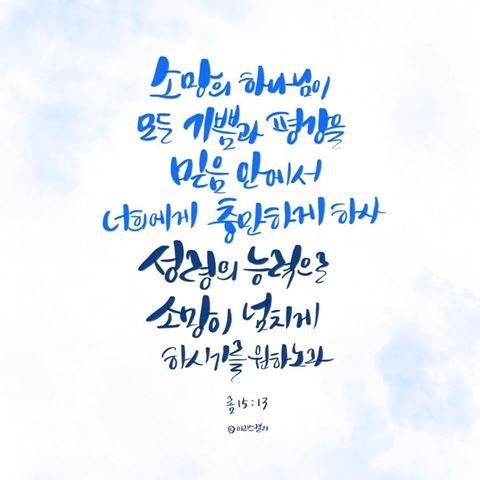 소망의 하나님이
모든 기쁨과 평강을
믿음 안에서
너희에게 충만하게 하사
성령의 능력으로
소망이 넘치게
하시기를 원하노라
롬 15:13